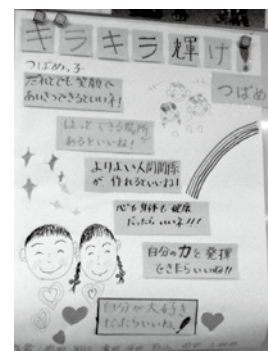 キラキラ輝け!
つばめっ子
つばめ
だれとでも笑顔で
あいさつできるといいネ!
ほっとできる場所
あるといいね!
よりよい人間関係
が作れるといいね!
心も身体も健康
だったらいいネ!!!
自分の力を発揮
できたらいいね!!
自分が大好き
だったらいいね